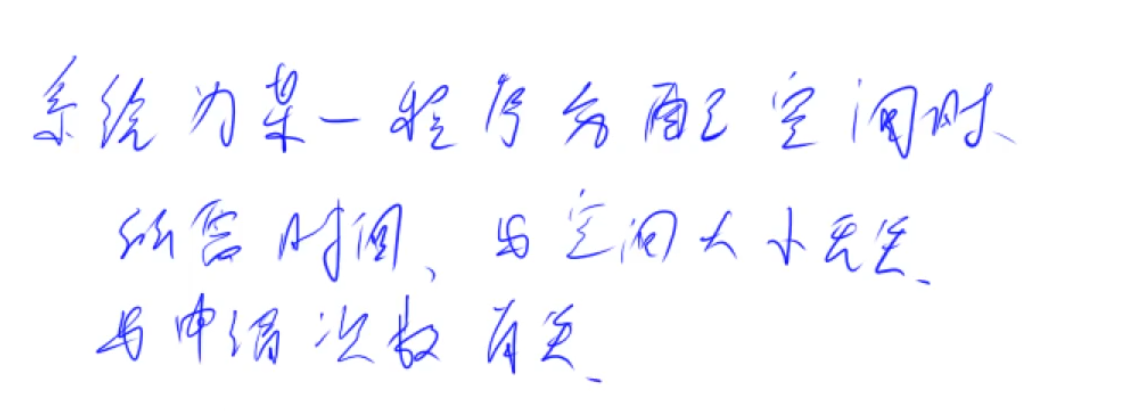 系统为某一程序分配空间时、
所需时间、与空间大小无关、
与申请次数有关、